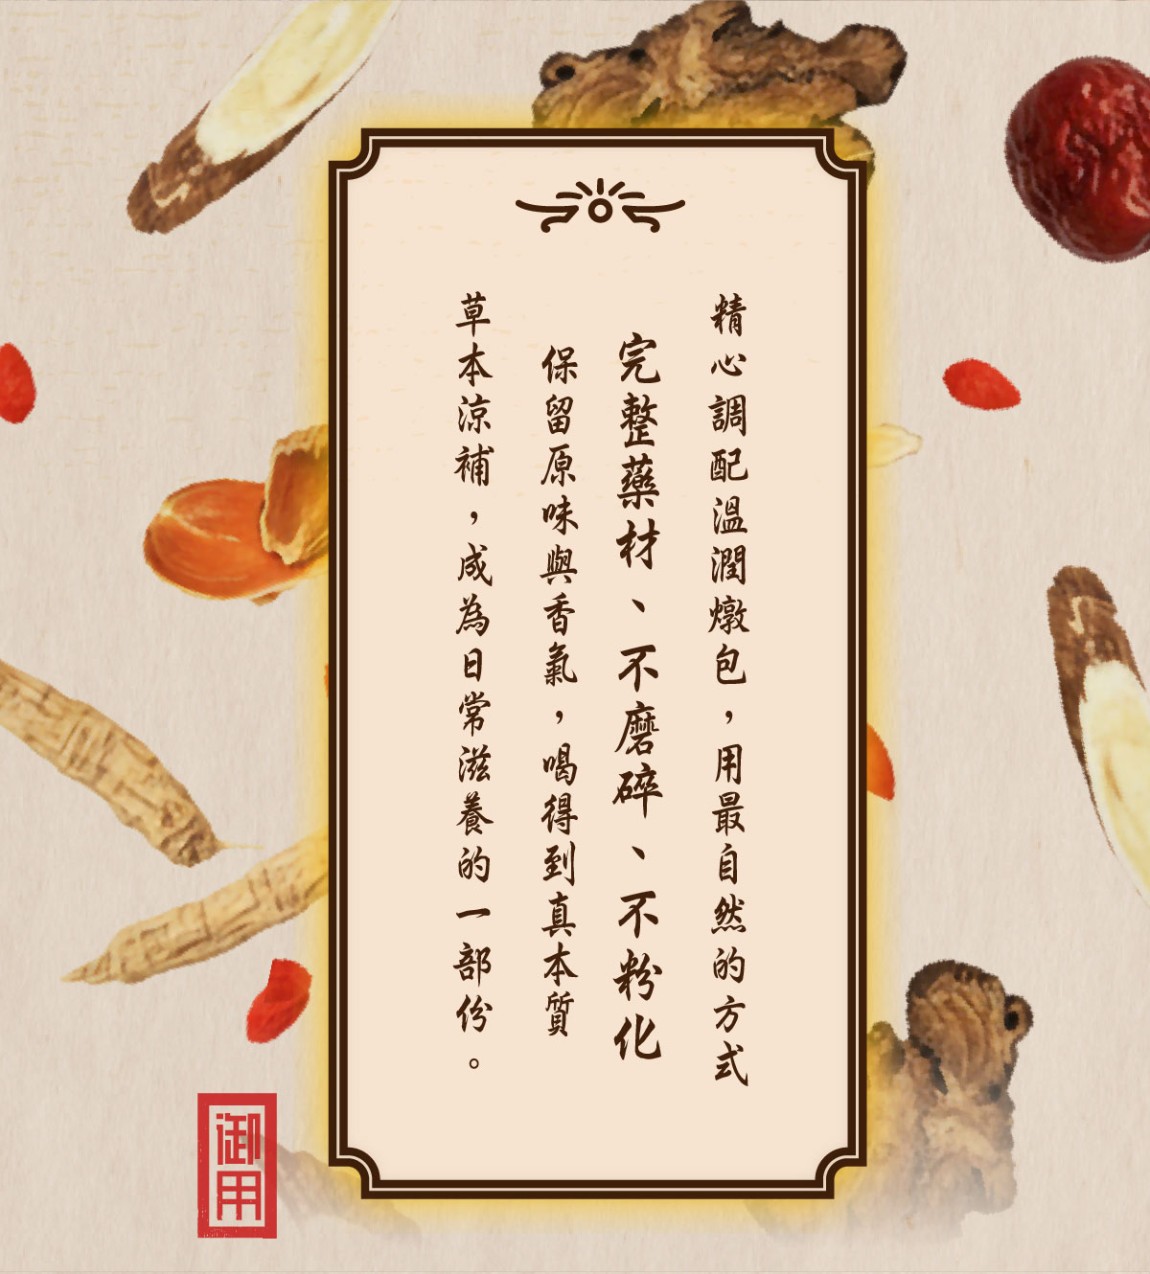 精心調配溫潤燉包，用最自然的方式
完整藥材、不磨碎、不粉化
保留原味與香氣，喝得到真本質
草本涼補，成為日常滋養的一部份。
御用